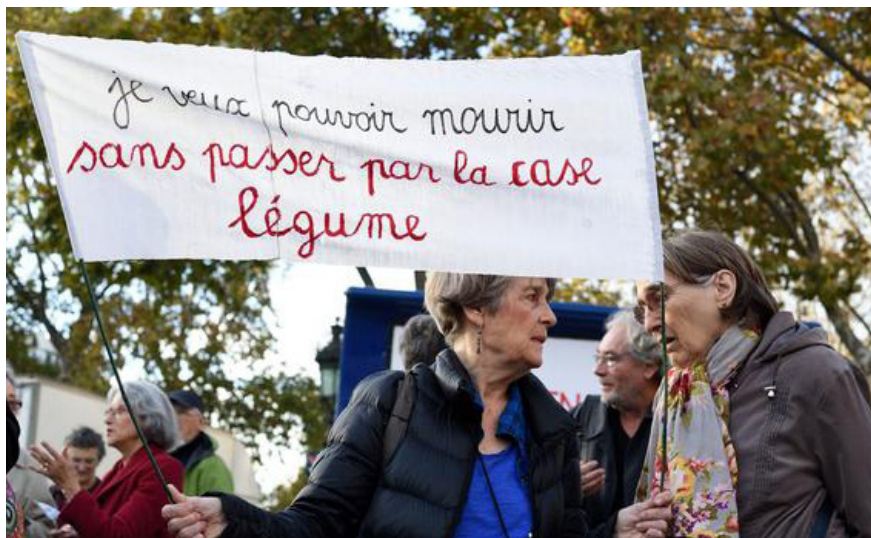 je veux pouvoir mourir
sans passer par la case
légume